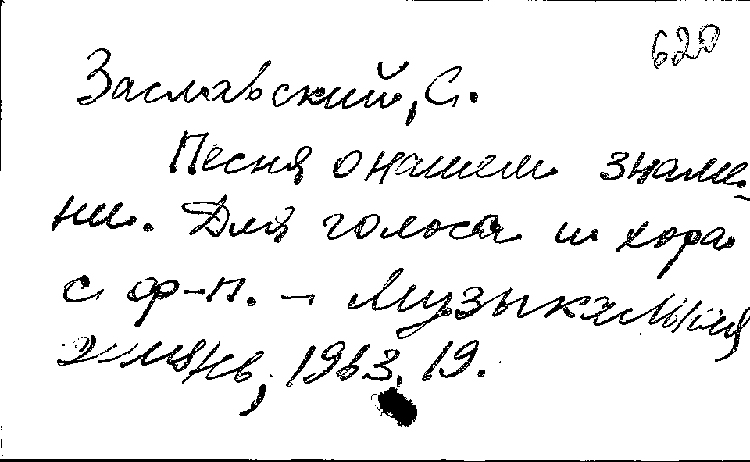 620
Заславский, С.
Песня о нашем знаме-
ни. Для голоса и хора
с ф-п. - Музыкальная
жизнь, 1963, 19.